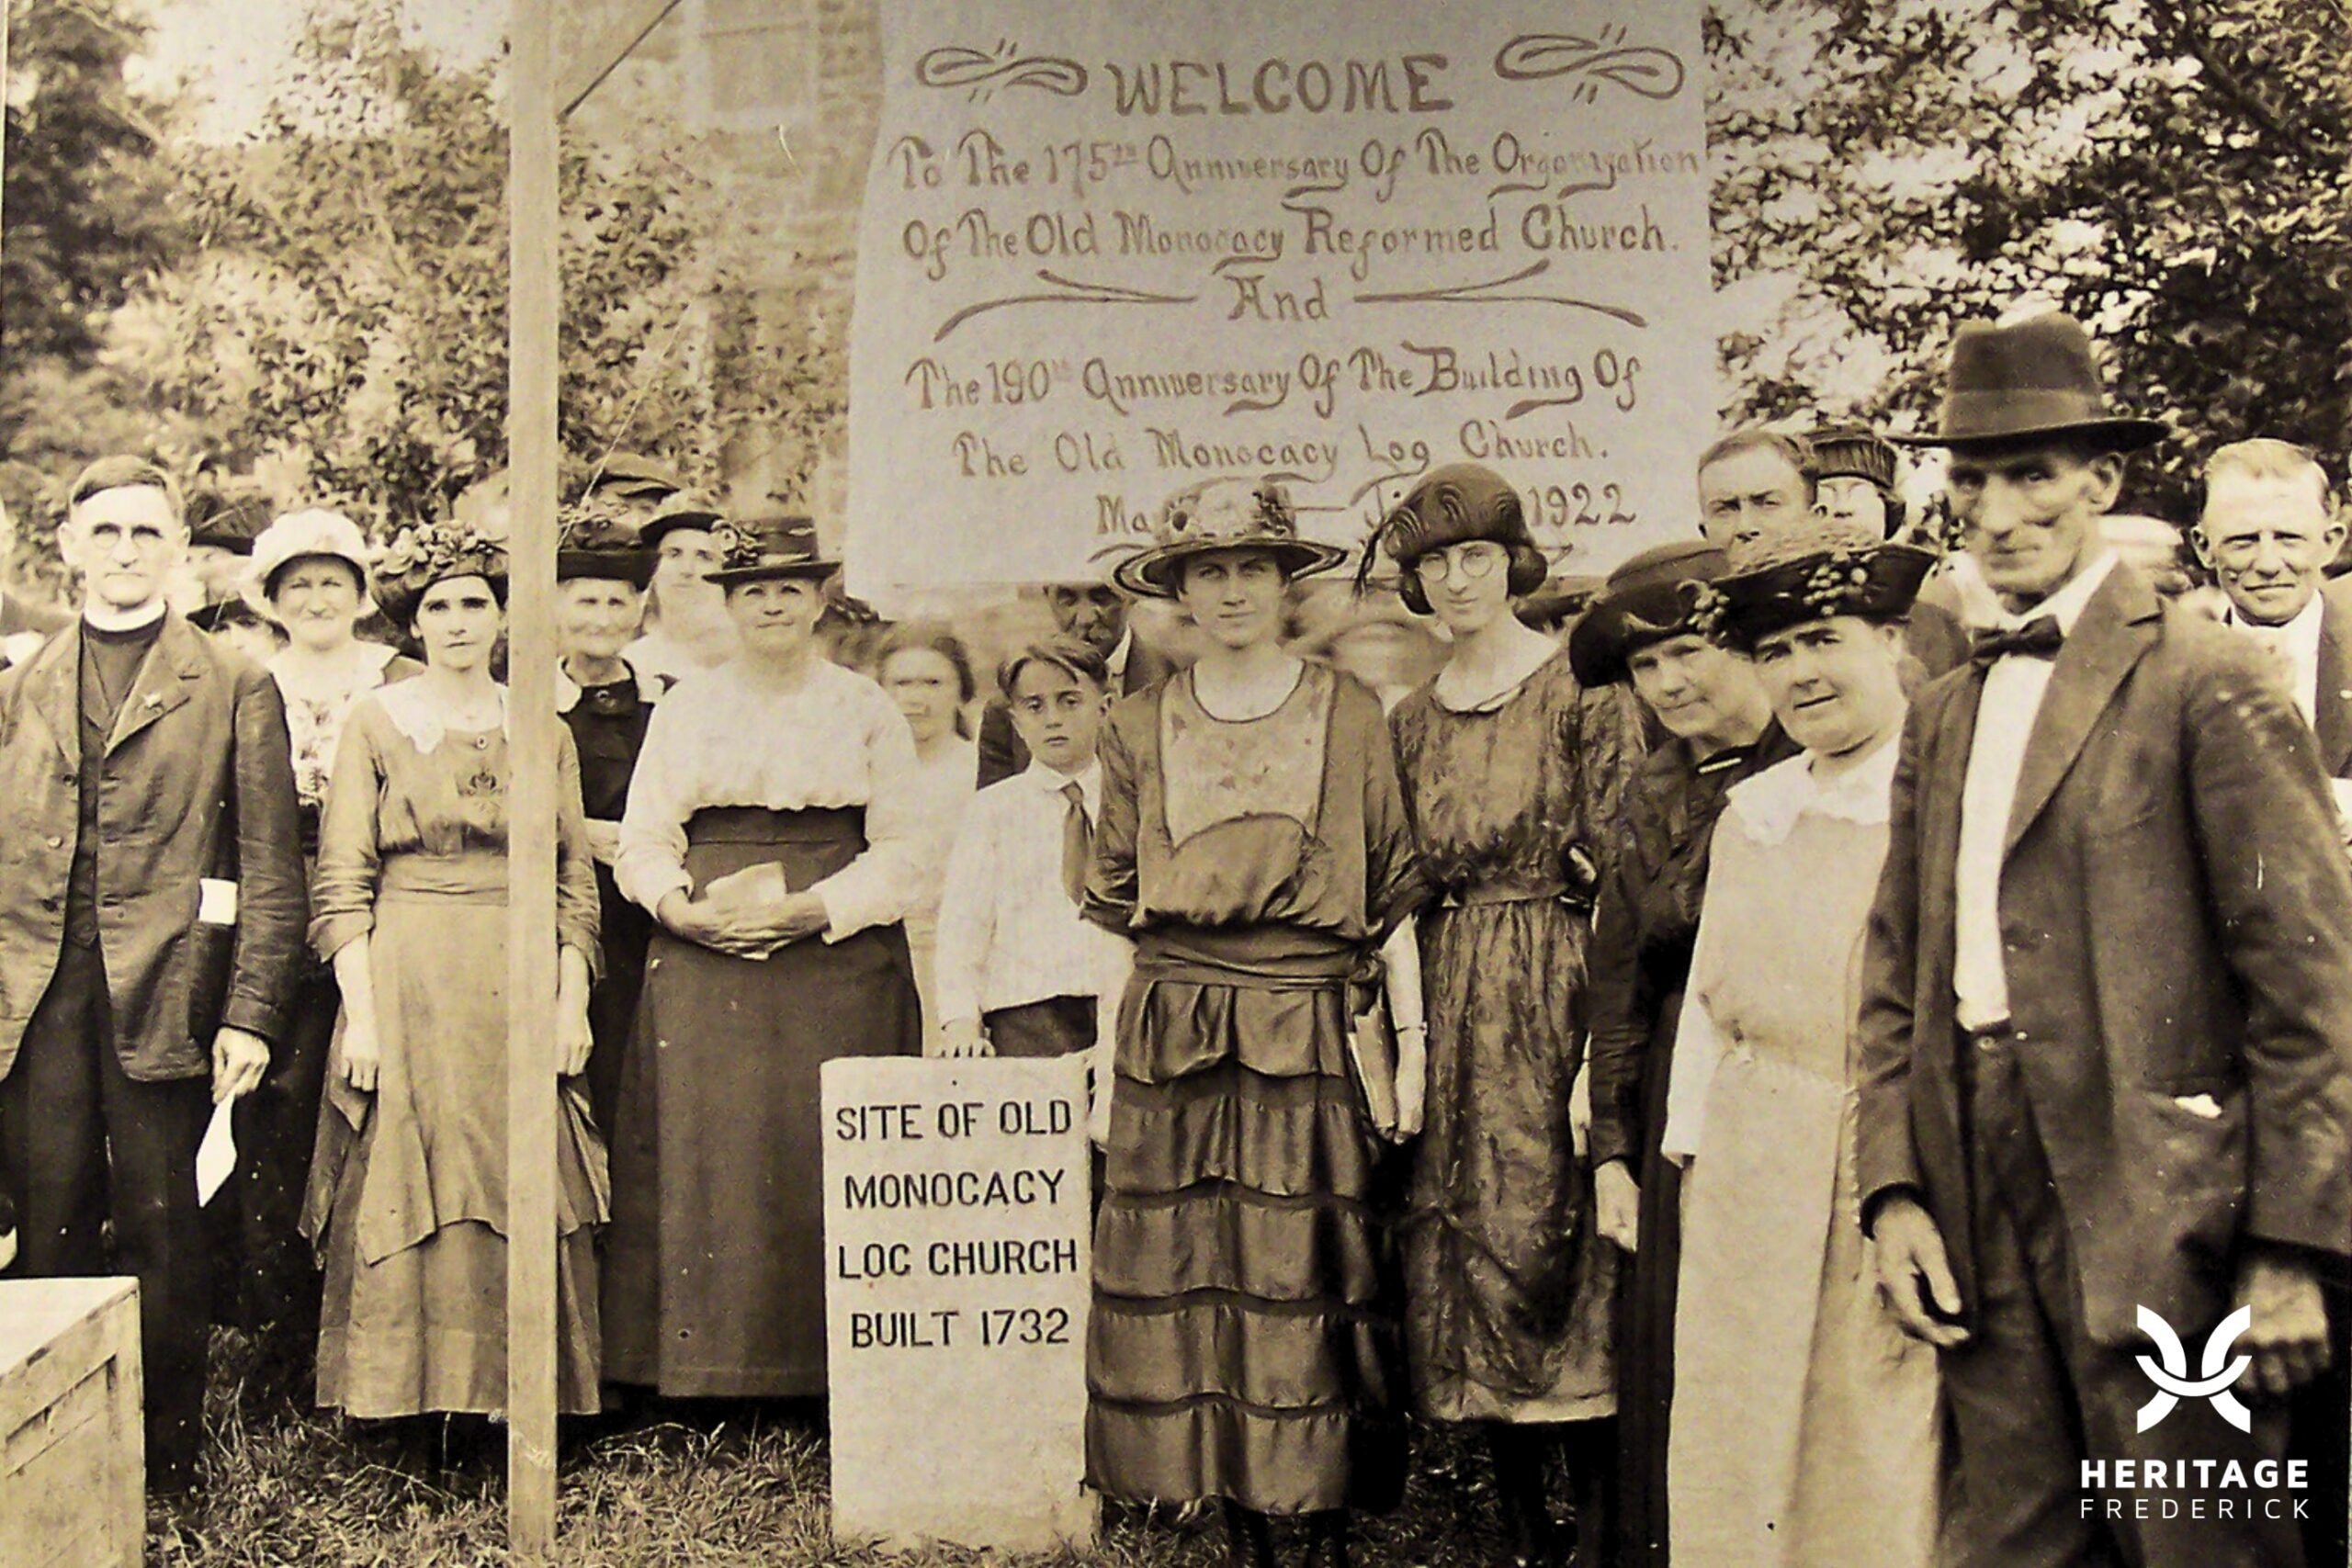 WELCOME
To The 175th Anniversary Of The Organization
Of The Old Monocacy Reformed Church.
And
The 190th Anniversary Of The Building Of
The Old Monocacy Log Church.
1922
SITE OF OLD
MONOCACY
LOG CHURCH
BUILT 1732
HERITAGE
FREDERICK